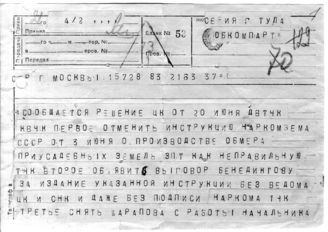 4/2
Приня
Бланк № 53
СЕРИЯ Г ТУЛА
ОБКОМПАРТ
го
час.
мин.
Передал
70
Р Г МОСКВЫ 1 15728 83 2183 37
СООБЩАЕТСЯ РЕШЕНИЕ ЦК ОТ 20 ИЮНЯ ДВТЧК
КВЧК ПЕРВОЕ ОТМЕНИТЬ ИНСТРУКЦИЮ НАРКОМЗЕМА
СССР ОТ 3 ИЮНЯ О ПРОИЗВОДСТВЕ ОБМЕРА
ПРИУСАДЕБНЫХ ЗЕМЕЛЬ ЗПТ КАК НЕПРАВИЛЬНУЮ
ТЧК ВТОРОЕ ОБ'ЯВИТЬ ВЫГОВОР БЕНЕДИКТОВУ
ЗА ИЗДАНИЕ УКАЗАННОЙ ИНСТРУКЦИИ БЕЗ ВЕДОМА
ЦК И СНК И ДАЖЕ БЕЗ ПОДПИСИ НАРКОМА ТЧК
ТРЕТЬЕ СНЯТЬ ШАРАПОВА С РАБОТЫ НАЧАЛЬНИКА